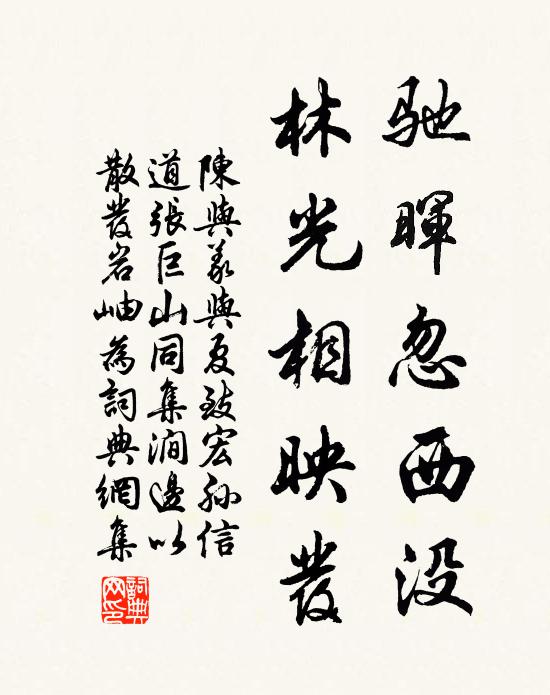 馳暉忽西没
林光相映發
陳與義與夏致宏孫信
道張巨山同集澗邊以
散發岩岫為詞典網集
詞典網印